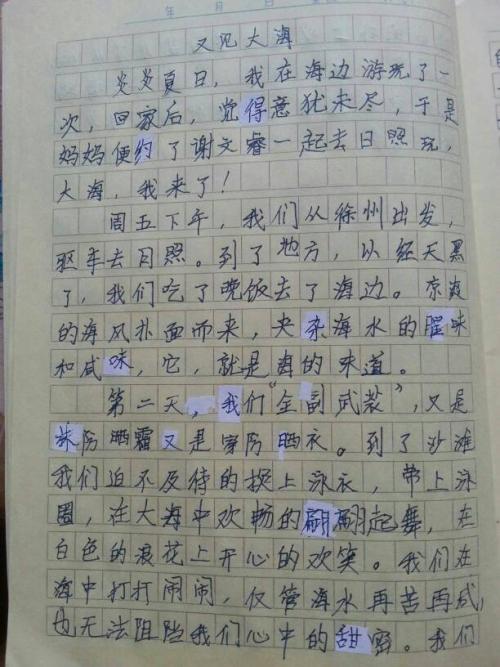 年 月 日
又见大海
炎炎夏日，我在海边游玩了一
次，回家后，觉得意犹未尽，于是
妈妈便约了谢文睿一起去日照玩，
大海，我来了！
周五下午，我们从徐州出发，
驱车去日照。到了地方，以经天黑
了，我们吃了晚饭去了海边。凉爽
的海风扑面而来，夹杂海水的腥味
和咸味，它，就是海的味道。
第二天，我们“全副武装”，又是
抹防晒霜又是穿防晒衣。到了沙滩
我们迫不及待的换上泳衣，带上泳
圈，在大海中欢畅的翩翩起舞，在
白色的浪花上开心的欢笑。我们在
海中打打闹闹，仅管海水再苦再咸，
也无法阻挡我们心中的甜密。我们